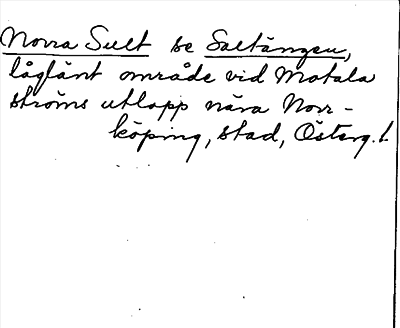 Norra Sult se Saltängen,
låglänt område vid Motala
ströms utlopp nära Norr-
köping, stad, Österg.l.